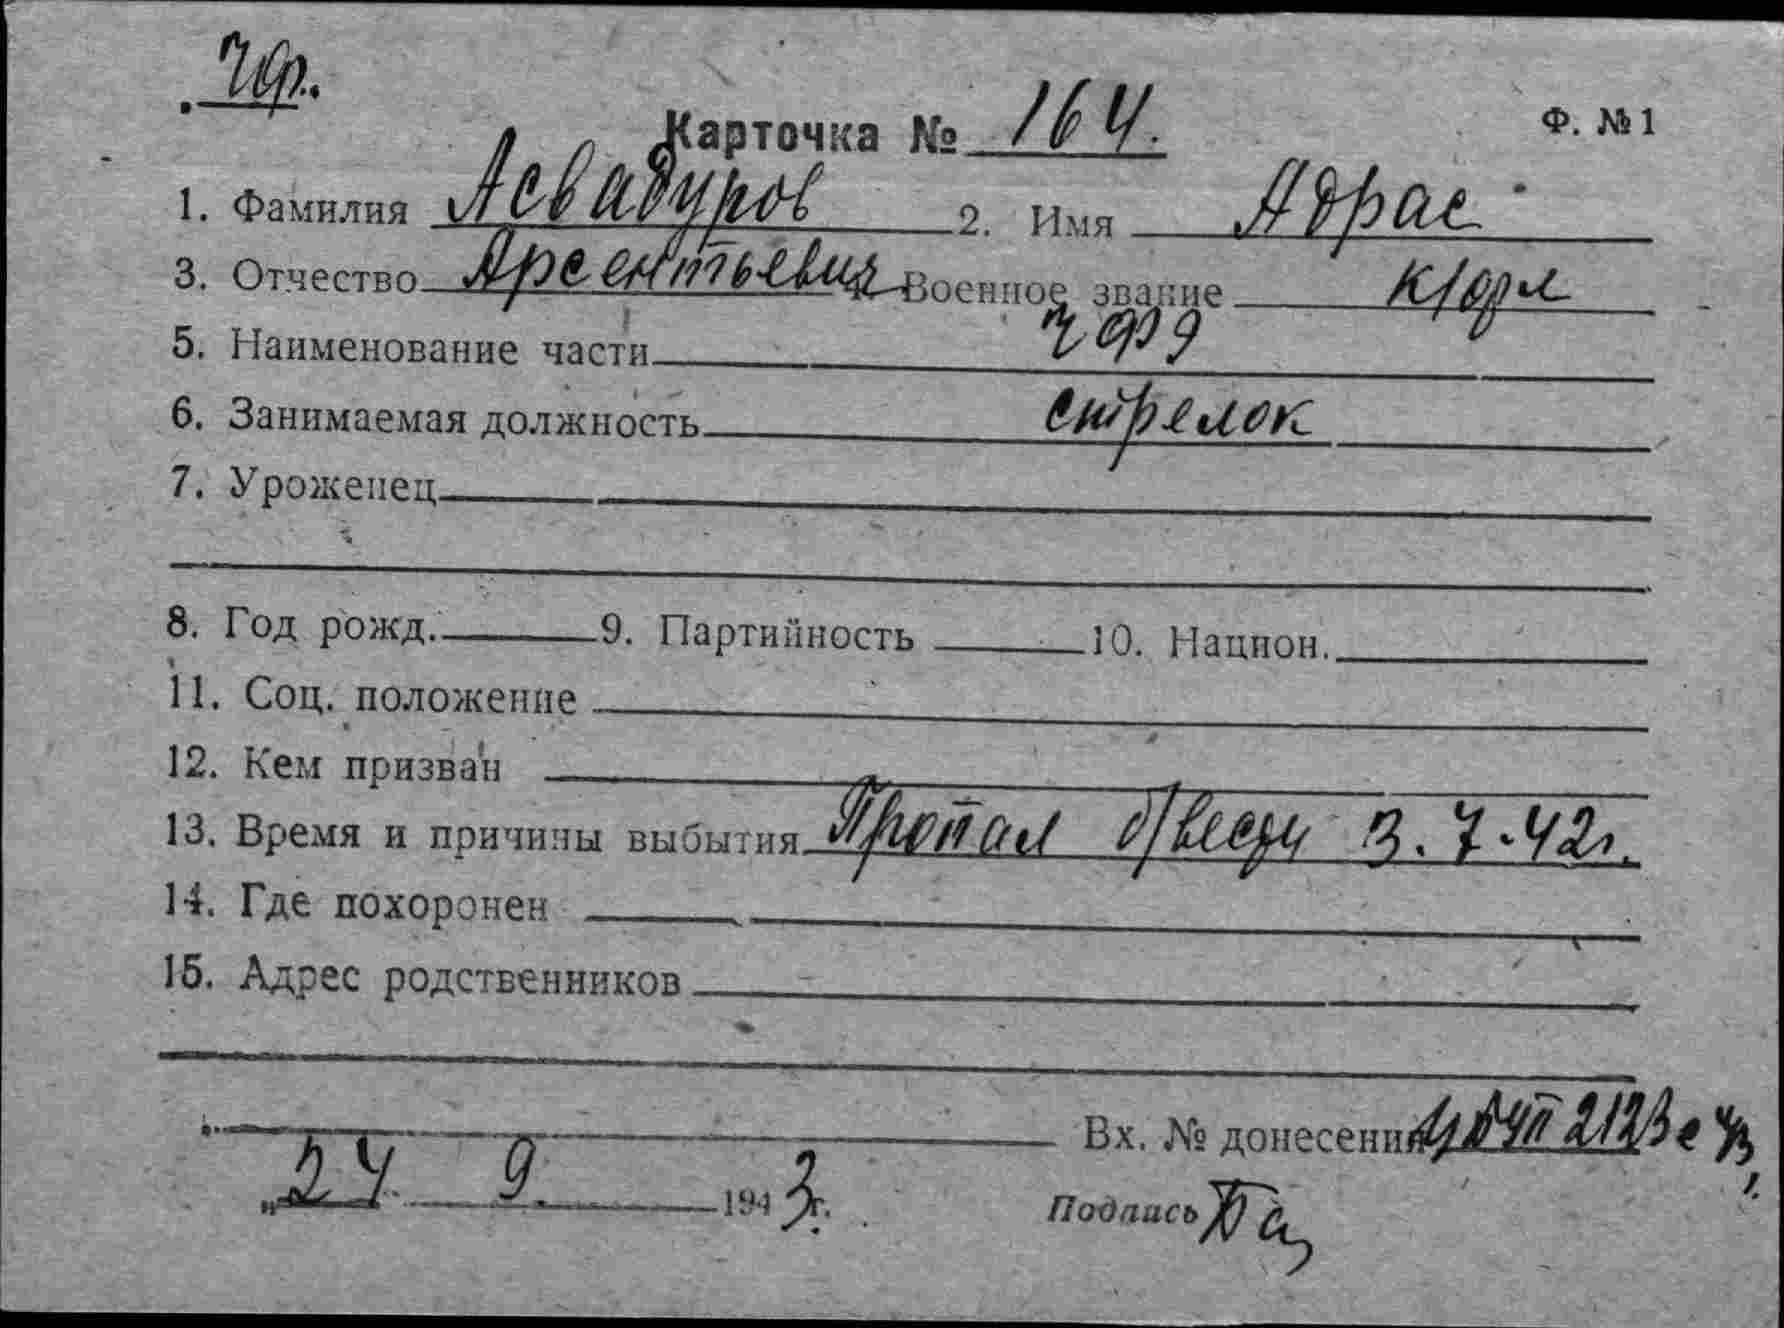 Карточка № 164.
Ф. №1
1. Фамилия Асвадуров 2. Имя Адрас
3. Отчество Арсентьевич Военное звание к/фл
5. Наименование части ЧФ
6. Занимаемая должность стрелок
7. Уроженец
8. Год рожд. 9. Партийность 10. Национ.
11. Соц. положение
12. Кем призван
13. Время и причины выбытия Пропал б/вести 3.7.42г.
14. Где похоронен
15. Адрес родственников
Вх. № донесения
„24 9. 1943г.
Подпись